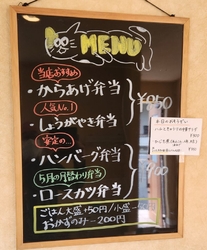 MENU
当店おすすめ
・からあげ弁当
人気No.1
・しょうがやき弁当
¥950
安定の
・ハンバーグ弁当
5月の月替わり弁当
・ロースカツ弁当
¥900
ごはん大盛+50円/小盛-50
おかずのみ-200円
本日のおそうざい